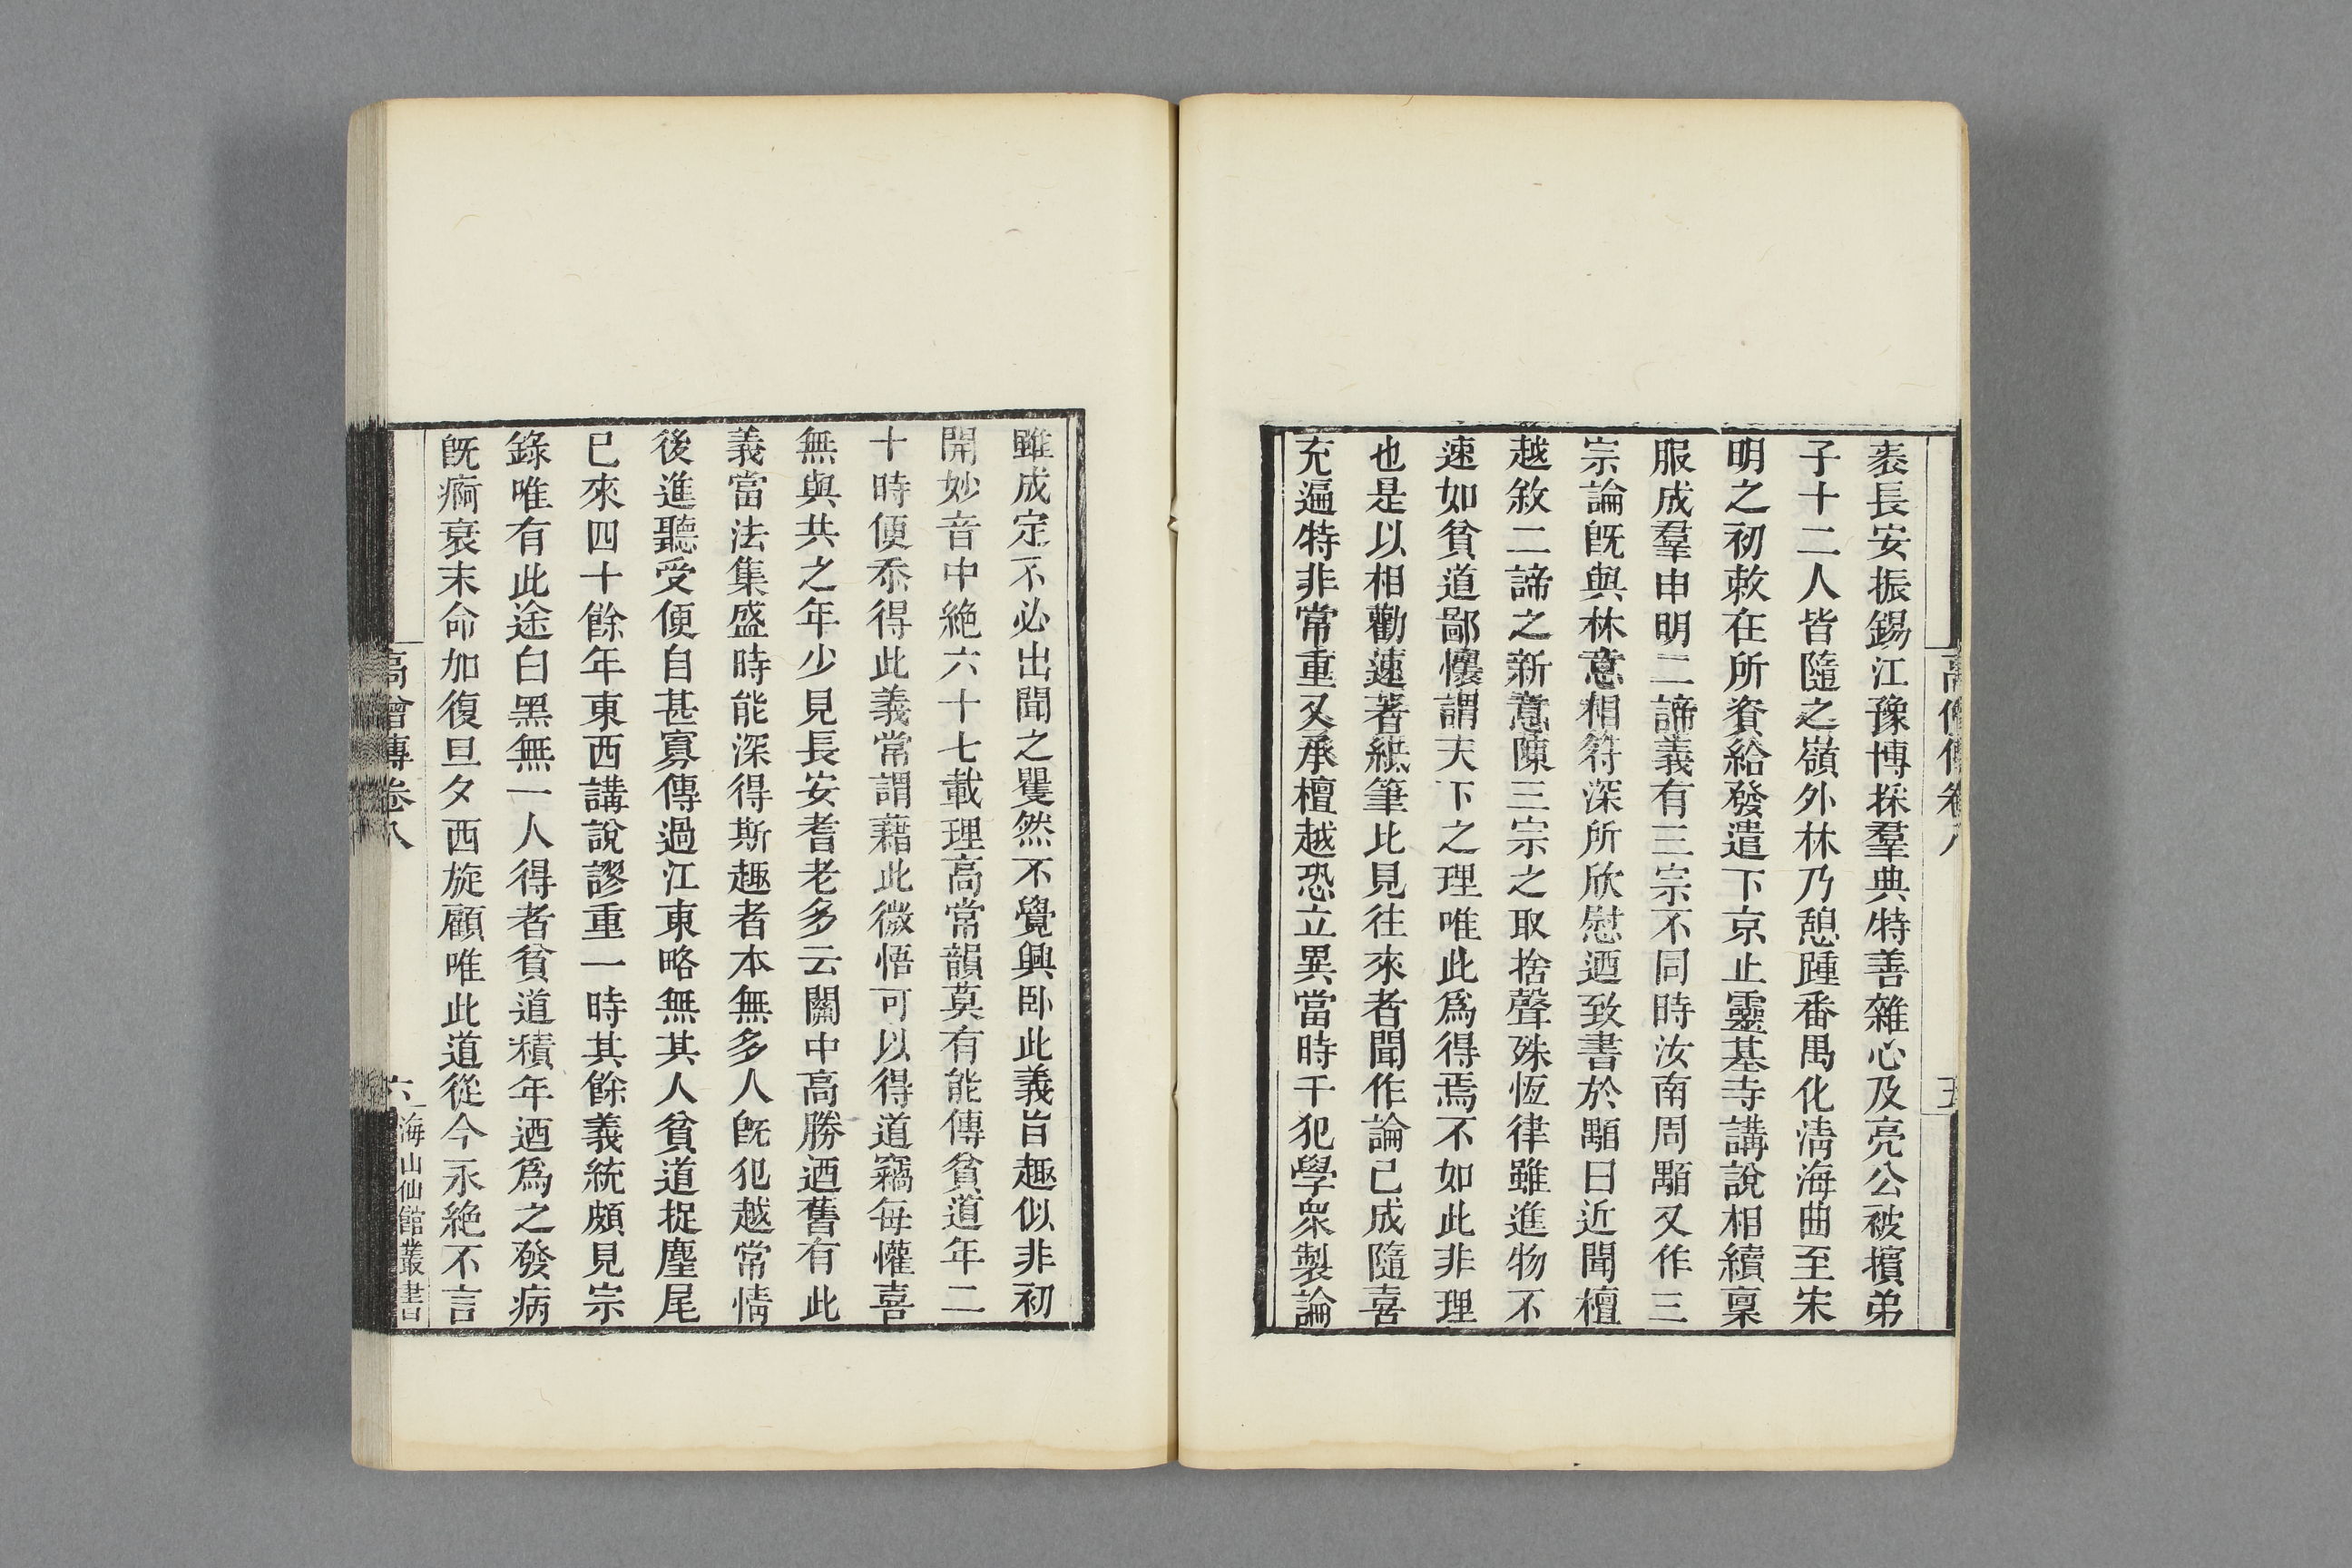 高僧傳卷八
五
表長安振錫江豫博採羣典特善雜心及亮公被擯弟
子十二人皆隨之嶺外林乃憩踵番禺化淸海曲至宋
明之初敕在所資給發遣下京止靈基寺講說相續稟
服成羣申明二諦義有三宗不同時汝南周顒又作三
宗論旣與林意相符深所欣慰迺致書於顒曰近聞檀
越敘二諦之新意陳三宗之取捨聲殊恆律雖進物不
速如貧道鄙懷謂天下之理唯此爲得焉不如此非理
也是以相勸速著紙筆比見往來者聞作論已成隨喜
充遍特非常重又承檀越恐立異當時干犯學衆製論
雖成定不必出聞之矍然不覺興卧此義旨趣似非初
開妙音中絶六十七載理高常韻莫有能傳貧道年二
十時便忝得此義常謂藉此微悟可以得道竊每懽喜
無與共之年少見長安耆老多云關中高勝迺舊有此
義當法集盛時能深得斯趣者本無多人旣犯越常情
後進聽受便自甚寡傳過江東略無其人貧道捉麈尾
已來四十餘年東西講說謬重一時其餘義統頗見宗
錄唯有此途白黑無一人得者貧道積年迺爲之發病
旣痾衰末命加復旦夕西旋顧唯此道從今永絶不言
高僧傳卷八
六
海山仙館叢書